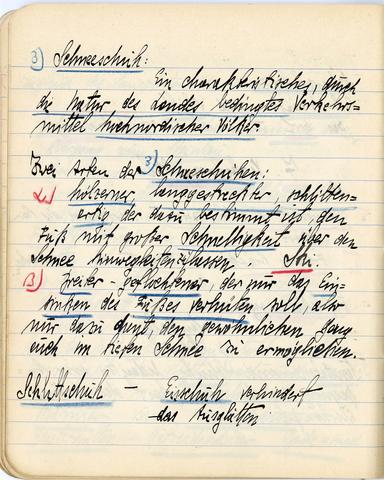 3) Schneeschuh:
Ein charakteristisches, durch
die Natur des Landes bedingtes Verkehrs-
mittel hochnordischer Völker.
Zwei Arten der 3) Schneeschuhen:
α) hölzerner langgestreckter, schlitten-
der dazu bestimmt ist, den
Fuß mit großer Schnelligkeit über den
Schnee hinweggleiten zu lassen.
β) geflochtener, der nur das Ein-
sinken des Fußes verhüten soll, also
nur dazu dient, den gewöhnlichen Gang
auch im tiefen Schnee zu ermöglichen.
Schlittschuh – Eisschuh verhindert
das Ausglätten